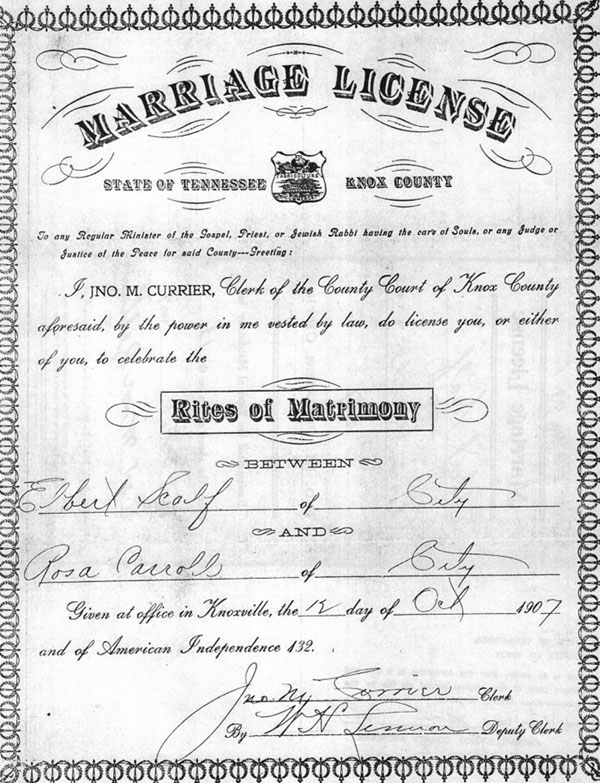 MARRIAGE LICENSE
STATE OF TENNESSEE KNOX COUNTY
AGRICULTURE
To any Regular Minister of the Gospel, Priest, or Jewish Rabbi having the care of Souls, or any Judge or
Justice of the Peace for said County---Greeting:
I, JNO. M. CURRIER, Clerk of the County Court of Knox County
aforesaid, by the power in me vested by law, do license you, or either
of you, to celebrate the
Rites of Matrimony
BETWEEN
Elbert Scalf of City
AND
Rosa Carroll of City
Given at office in Knoxville, the 12 day of Oct 1907
and of American Independence 132.
Jno M Currier Clerk
By W H Deputy Clerk